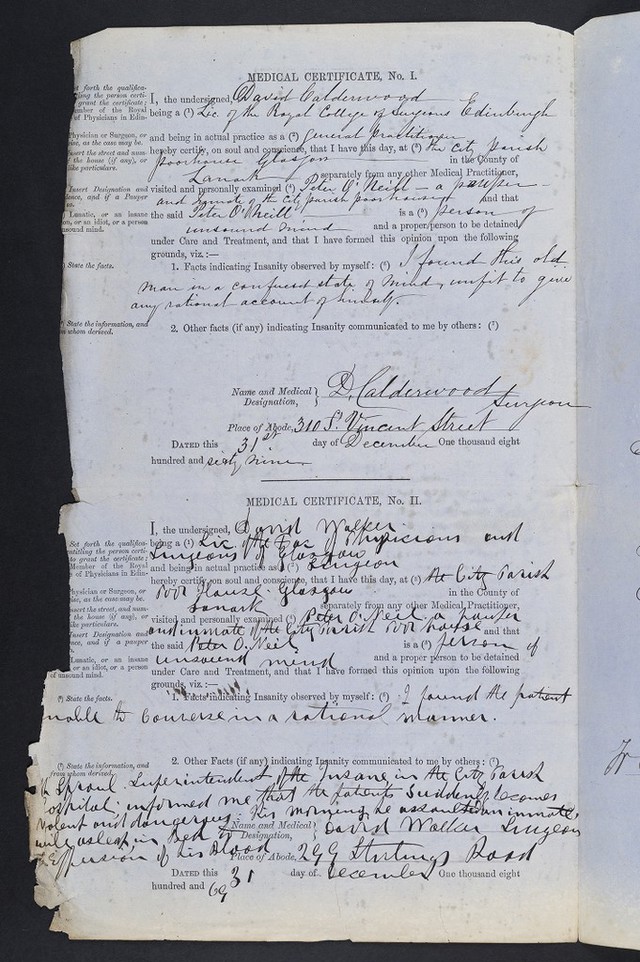 MEDICAL CERTIFICATE, No. I.
set forth the qualifica-
ling the person certi-
grant the certificate;
ember of the Royal
of Physicians in Edin-
I, the undersigned, David Calderwood
being a (¹) Lic. of the Royal College of Surgeons Edinburgh
Physician or Surgeon, or
ise, as the case may be.
and being in actual practice as a (²) general Practitioner
Insert the street and num-
f the house (if any), or
ike particulars.
hereby certify, on soul and conscience, that I have this day, at (³) the City Parish
Poorhouse Glasgow in the County of
Lanark separately from any other Medical Practitioner,
Insert Designation and
dence, and if a Pauper
so.
visited and personally examined (⁴) Peter O'Neill – a pauper –
and inmate of the City parish poorhouse and that
Lunatic, or an insane
on, or an idiot, or a person
nsound mind.
the said Peter O'Neill is a (⁵) person of
unsound mind and a proper person to be detained
under Care and Treatment, and that I have formed this opinion upon the following
grounds, viz.:—
State the facts.
1. Facts indicating Insanity observed by myself: (⁶) I found this old
man in a confused state of mind, unfit to give
any rational account of himself.
(⁷) State the information, and
from whom derived.
2. Other facts (if any) indicating Insanity communicated to me by others: (⁷)
Name and Medical
Designation,
D. Calderwood
Surgeon
Place of Abode, 310 St. Vincent Street
DATED this 31st day of December One thousand eight
hundred and sixty nine
MEDICAL CERTIFICATE, No. II.
I, the undersigned, David Walker
Set forth the qualifica-
ntitling the person certi-
to grant the certificate;
Member of the Royal
e of Physicians in Edin-
being a (¹) Lic of the Fac of Physicians and
Surgeons of Glasgow
and being in actual practice as (²) Surgeon
hysician or Surgeon, or
ise, as the case may be.
hereby certify, on soul and conscience, that I have this day, at (³) the City Parish
nsert the street, and num-
f the house (if any), or
ike particulars.
Poor House Glasgow in the County of
Lanark separately from any other Medical Practitioner,
nsert Designation and
ence, and if a pauper
so.
visited and personally examined (⁴) Peter O. Neil a pauper
and inmate of the City Parish Poor house and that
Lunatic, or an insane
, or an idiot, or a person
of unsound mind.
the said Peter O. Neil is a (⁵) person of
unsound mind and a proper person to be detained
under Care and Treatment, and that I have formed this opinion upon the following
grounds, viz.:—
(⁶) State the facts.
1. Facts indicating Insanity observed by myself: (⁶) I found the patient
nable to converse in a rational manner.
(⁷) State the information, and
from whom derived.
2. Other Facts (if any) indicating Insanity communicated to me by others: (⁷)
Sproul Superintendent of the Insane in the City Parish
ospital informed me that the patient suddenly becomes
violent and dangerous. This morning he assaulted an inmate,
while asleep in Bed to
Effusion of his Blood
Name and Medical
Designation,
David Walker Surgeon
Place of Abode, 299 Stirlings Road
DATED this 31 day of December One thousand eight
hundred and 69